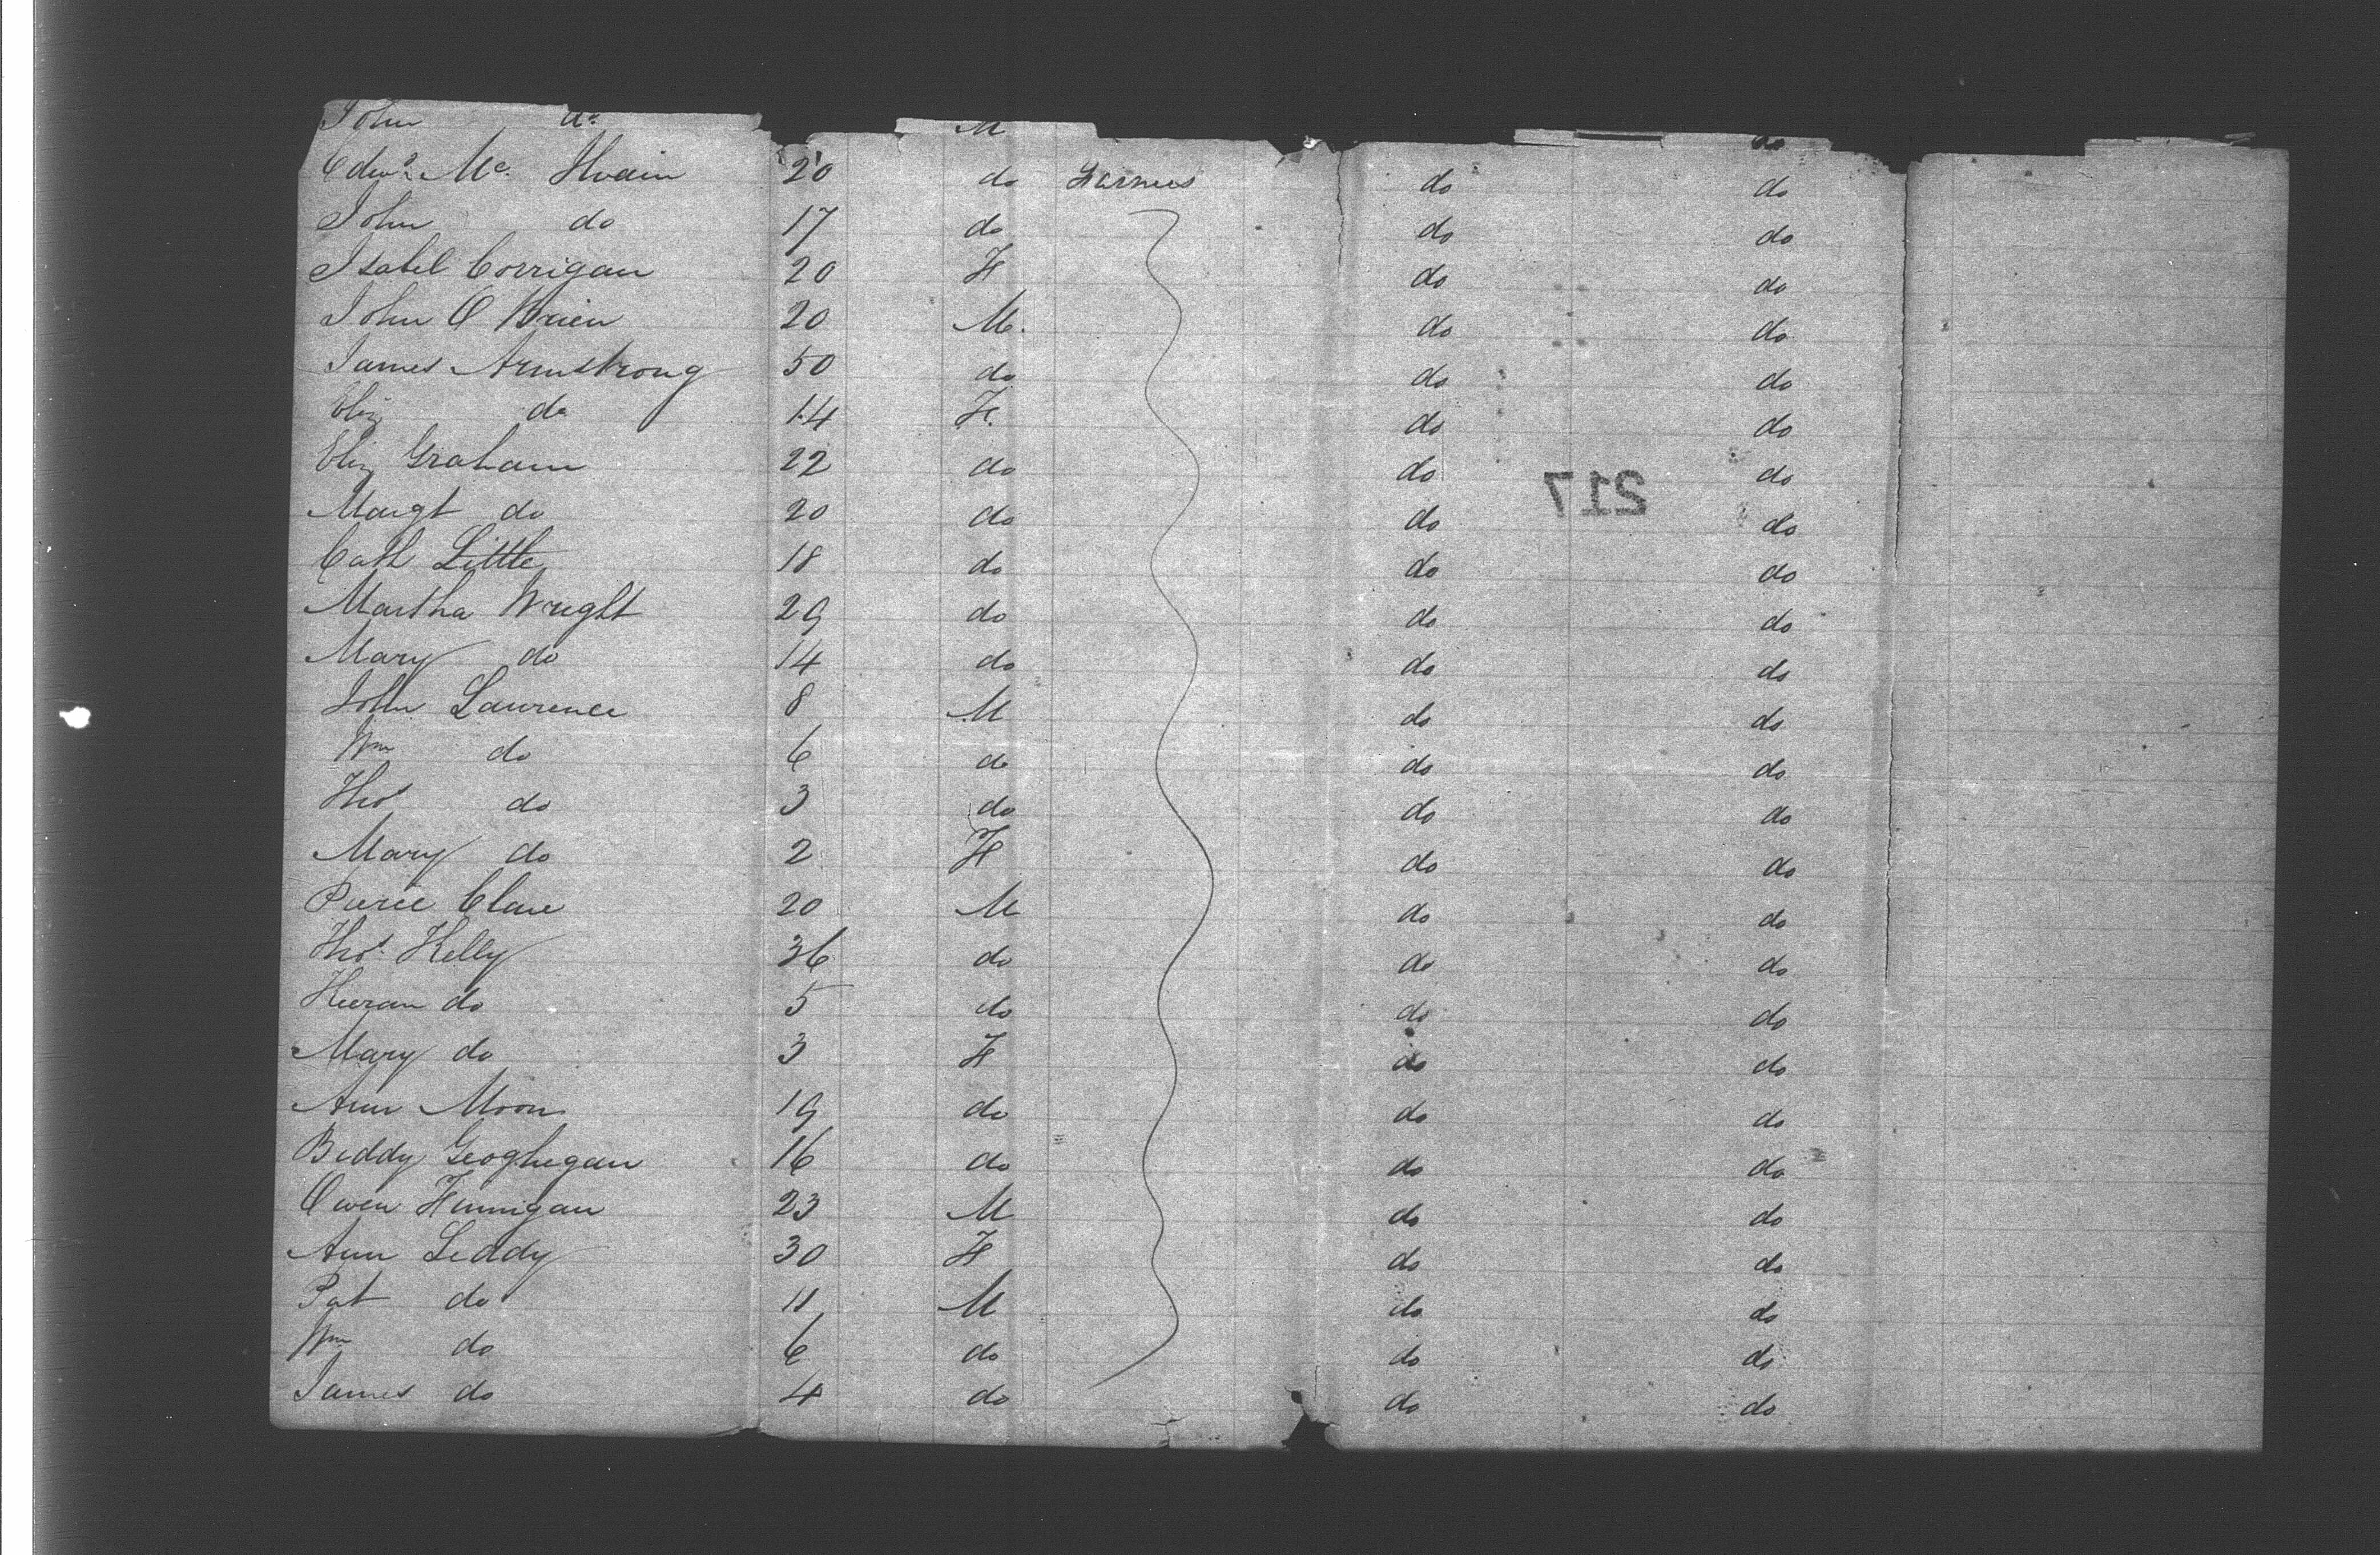 John do M do
Edwd. Mc. Ilvain 20 do Farmers do do
John do 17 do do do
Isabel Corrigan 20 F do do
John O Brien 20 M. do do
James Armstrong 50 do do do
Eliz do 14 F. do do
Eliz Graham 22 do do do
Margt do 20 do do do
217
Cath Little 18 do do do
Martha Wright 29 do do do
Mary do 14 do do do
John Lawrence 8 M do do
Wm do 6 do do do
Thos do 3 do do do
Mary do 2 F do do
Pierce Clare 20 M do do
Thos. Kelly 36 do do do
Kieran do 5 do do do
Mary do 3 F do do
Ann Moon 19 do do do
Biddy Geoghegan 16 do do do
Owen Finnigan 23 M do do
Ann Leddy 30 F do do
Pat do 11 M do do
Wm do 6 do do do
James do 4 do do do